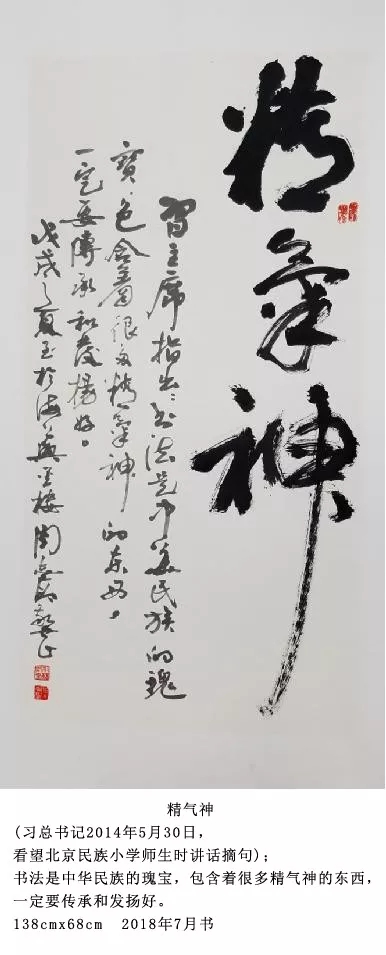 精氣神
習主席指出：书法是中華民族的瑰
寶，包含着很多精氣神的东西，
一定要傳承和發揚好。
戊戌之夏
精气神
(习总书记2014年5月30日，
看望北京民族小学师生时讲话摘句)；
书法是中华民族的瑰宝，包含着很多精气神的东西，
一定要传承和发扬好。
138cmx68cm 2018年7月书